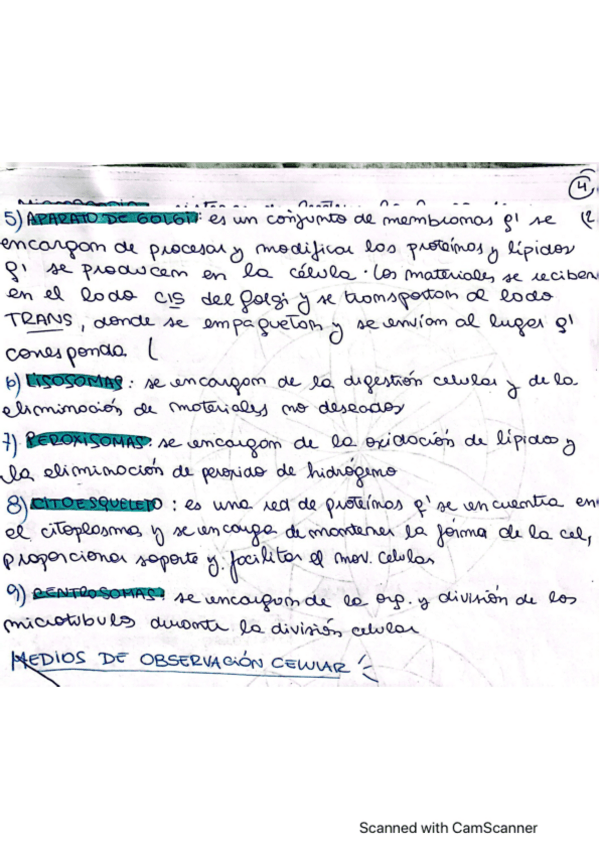 4
5) APARATO DE GOLGI: es un conjunto de membranas q' se
encargan de procesar y modificar los proteínas y lípidos
q' se producen en la célula. Los materiales se reciben
en el lado CIS del Golgi y se transportan al lado
TRANS, donde se empaquetan y se envían al lugar q'
corresponda
6) LISOSOMAS: se encargan de la digestión celular y de la
eliminación de materiales no deseados
7) PEROXISOMAS: se encargan de la oxidación de lípidos y
la eliminación de peroxido de hidrógeno
8) CITOESQUELETO: es una red de proteínas q' se encuentra en
el citoplasma y se encarga de mantener la forma de la cel,
proporcionar soporte y facilitar el mov. celular
9) CENTROSOMAS: se encargan de la org. y división de los
microtubulos durante la división celular
MEDIOS DE OBSERVACIÓN CELULAR
Scanned with CamScanner